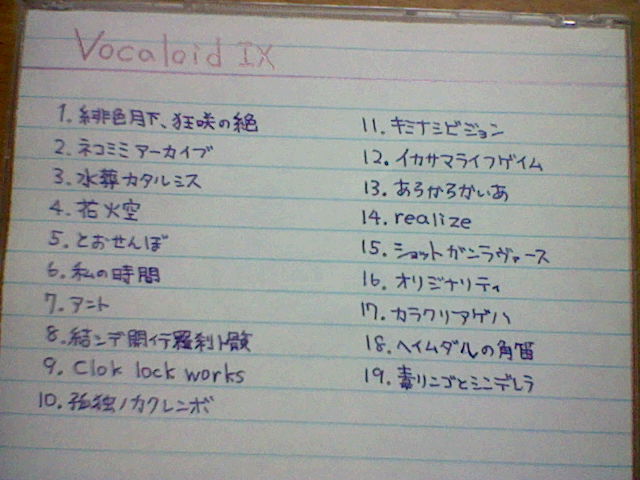 Vocaloid IX
1. 緋色月下、狂咲の絶
2. ネコミミアーカイブ
3. 水葬カタルミス
4. 花火空
5. とおせんぼ
6. 私の時間
7. アント
8. 結ンデ開イテ羅刹ト骸
9. Clok lock works
10. 孤独ノカクレンボ
11. キミナシビジョン
12. イカサマライフゲイム
13. あろかろかいあ
14. realize
15. ショットガンラヴァース
16. オリジナリティ
17. カラクリアゲハ
18. ヘイムダルの角笛
19. 毒リンゴとシンデレラ